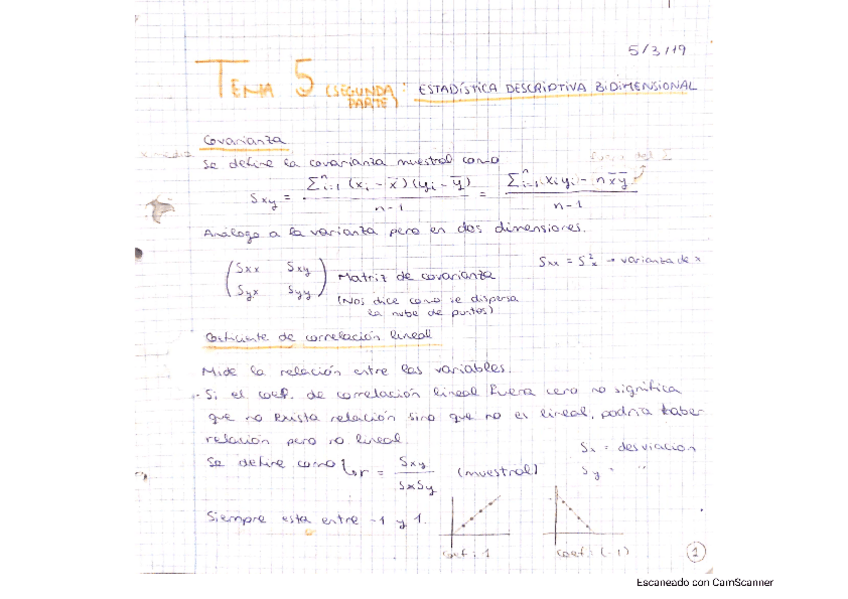 5/3/19
TEMA 5 (SEGUNDA PARTE): ESTADÍSTICA DESCRIPTIVA BIDIMENSIONAL
Covarianza
Se define la covarianza muestral como
Sxy = Σⁿi=1 (xi - x̄)(yi - ȳ) / n-1 = Σⁿi=1 xi yi - n x̄ȳ / n-1
Análogo a la varianza pero en dos dimensiones.
(Sxx Sxy
Syx Syy) Matriz de covarianza
Sxx = S²x → varianza de x
(Nos dice como se dispersa
la nube de puntos)
Coeficiente de correlación lineal
Mide la relación entre las variables.
Si el coef. de correlación lineal fuera cero no significa
que no exista relación sino que no es lineal, podría haber
relación pero no lineal.
Se define como r = Sxy / SxSy (muestral)
Sx = desviacion
Sy = "
Siempre esta entre -1 y 1.
coef: 1
coef: (-1)
1
Escaneado con CamScanner